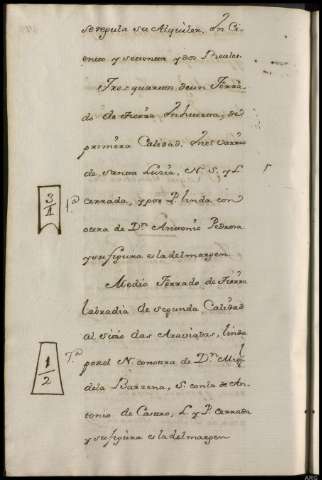 seregula su Alquiler, En Ci-
ento y sesenta y dos Reales
Tres quartos de un Ferra-
do de tierra Inhiersta, de
primera Calidad, En el varrio
de santa Luzia, N. S, y L.
3/4 1.ª cerrada, y por P. linda con
otra de D.n Antonio Pedrosa
y su figura es la del margen
Medio Ferrado de tierra
labradia de segunda Calidad
al sitio das Araviadas, linda
1/2 7.ª por el N. con otra de D.n Mig.l
de la Barzena, S. con la de An-
tonio de Castro, L y P. cerrada
y su figura es la del margen